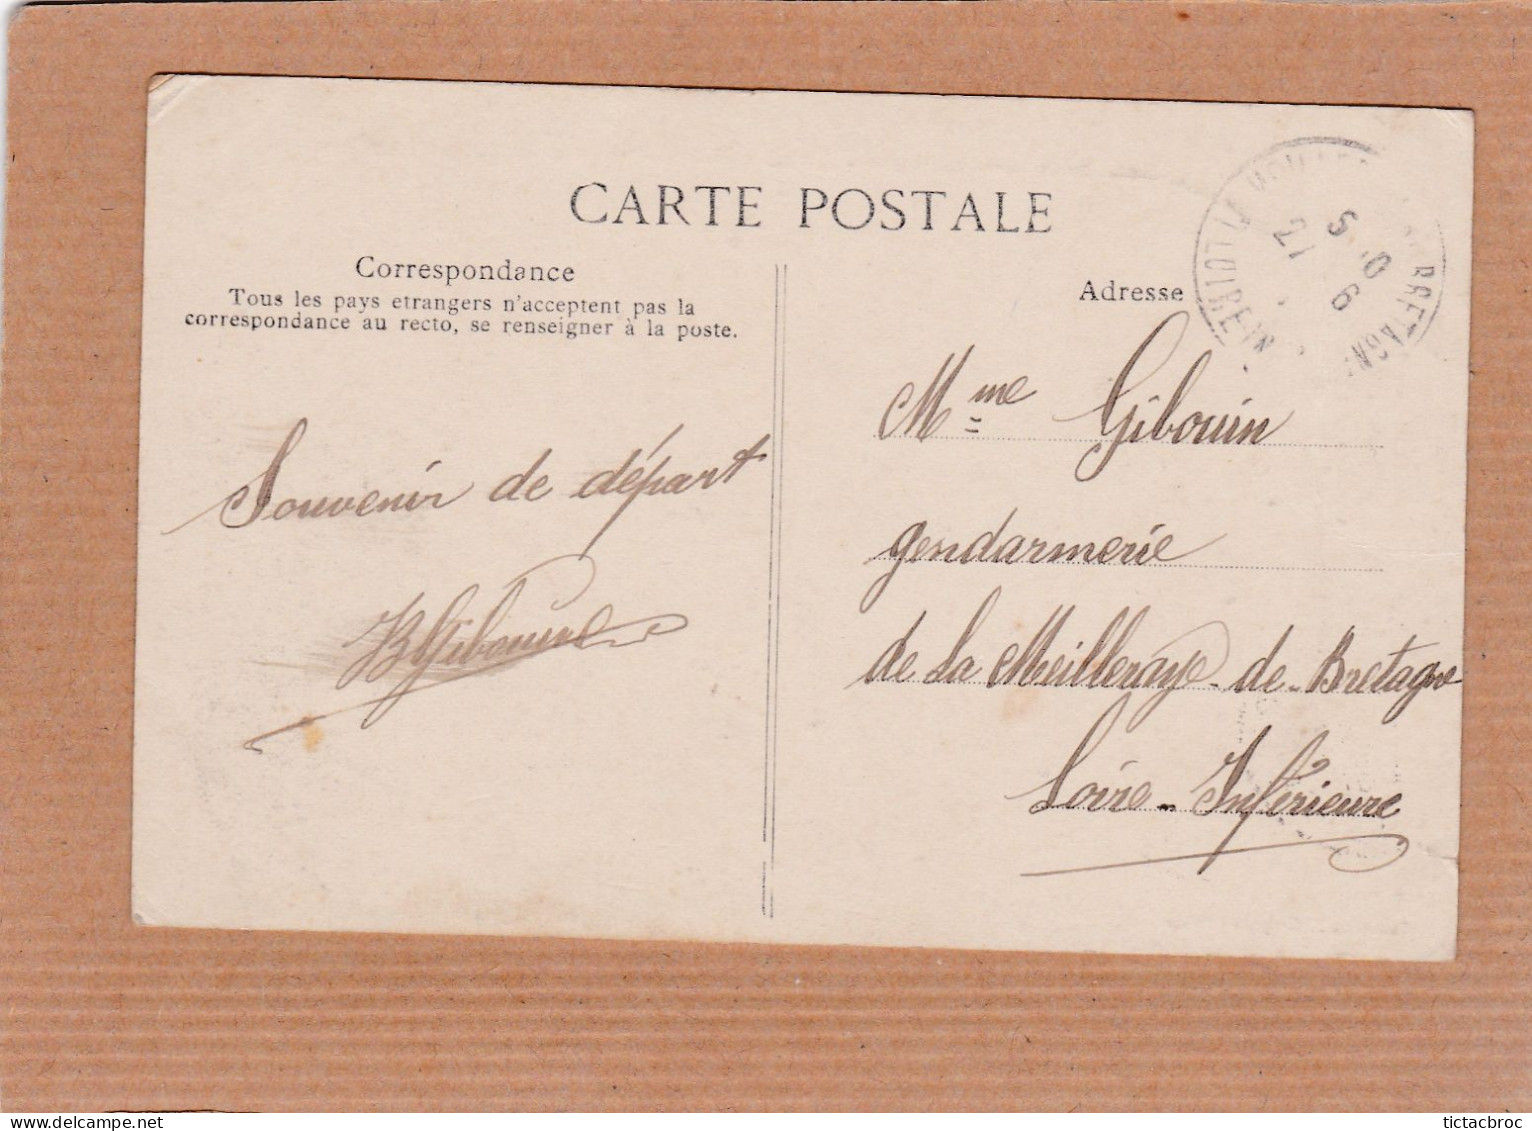 CARTE POSTALE
Correspondance
Tous les pays etrangers n'acceptent pas la
correspondance au recto, se renseigner à la poste.
Souvenir de départ
Gibouin
Adresse
Mme Gibouin
gendarmerie
de La Meilleraye-de-Bretagne
Loire-Inférieure
BRETAGN
27
tictacbroc
delcampe.net